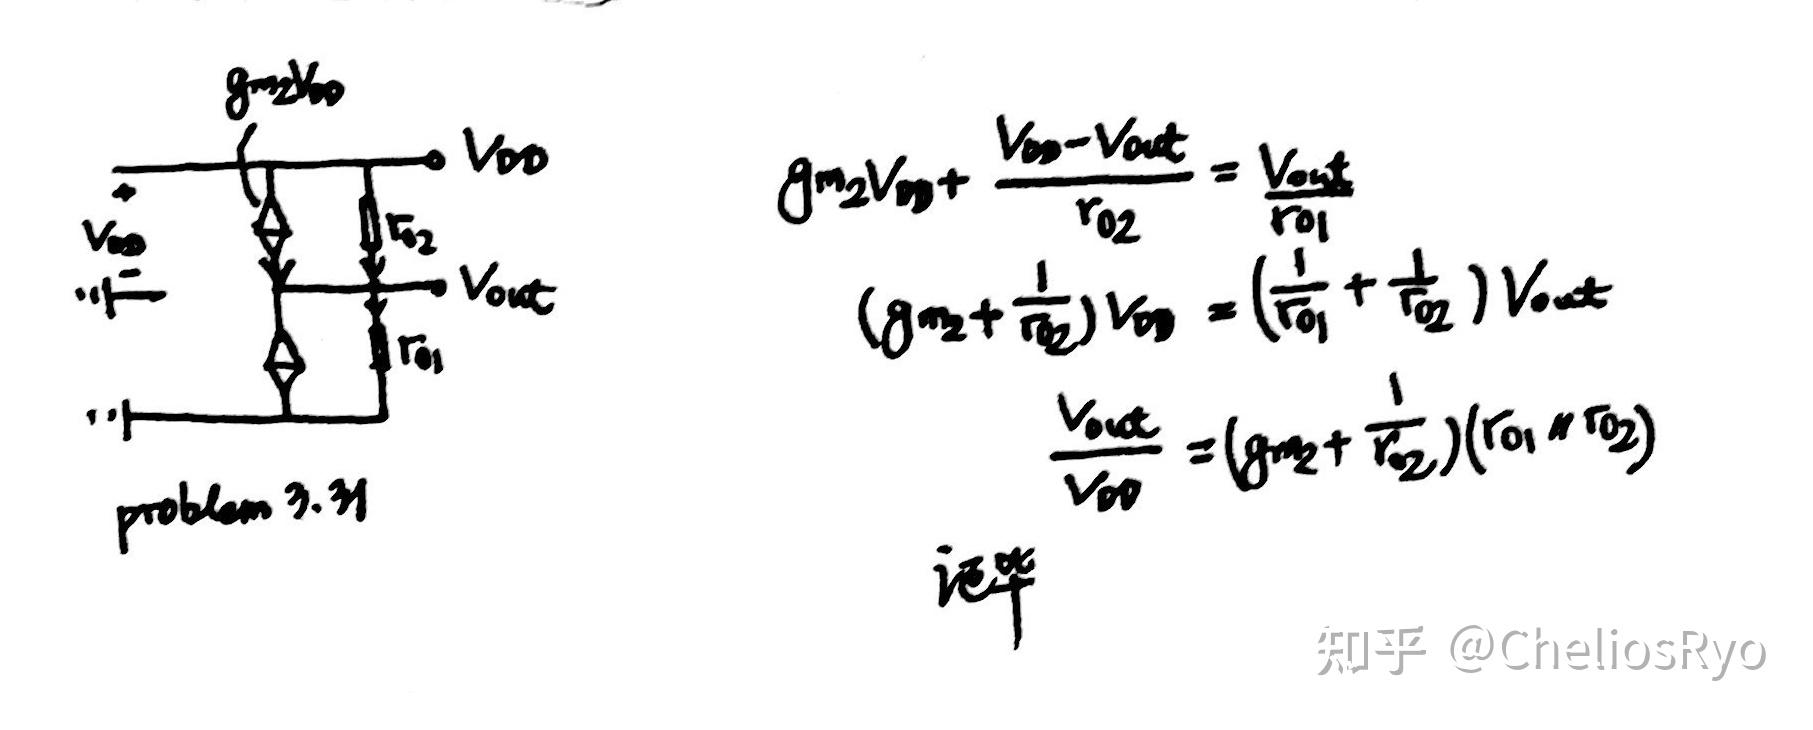 gm2VDD
VDD
+
VDD
-
ro2
Vout
ro1
problem 3.31
gm2VDD + (VDD - Vout)/ro2 = Vout/ro1
(gm2 + 1/ro2) VDD = (1/ro1 + 1/ro2) Vout
Vout/VDD = (gm2 + 1/ro2)(ro1 // ro2)
证毕
知乎 @CheliosRyo